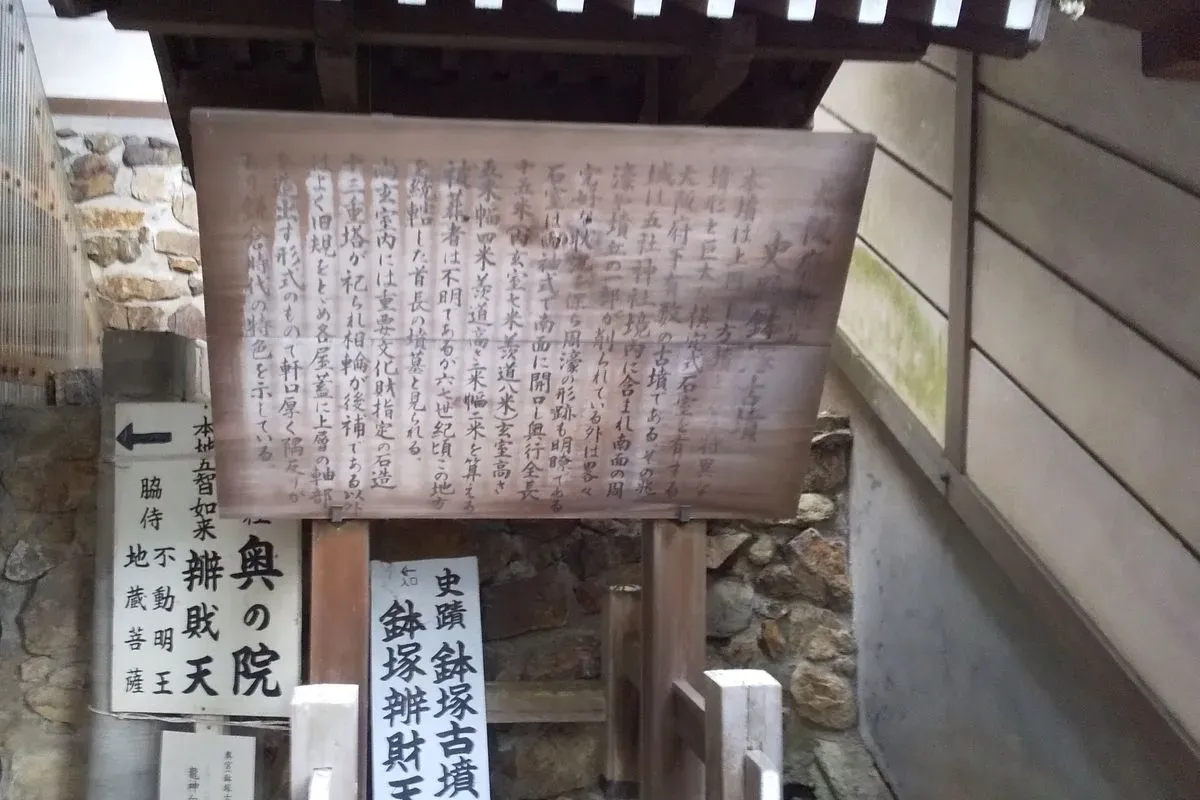 大阪府
史蹟 鉢塚古墳
本墳は上円下方墳
墳形と巨大な横穴式石室を有する
大阪府下有数の古墳であるその兆
域は五社神社境内に含まれ南面の周
濠と墳丘の一部が削られている外は畧々
完好な状態を保ち周濠の形跡も明瞭である
石室は両袖式で南面に開口し奥行全長
十五米内玄室七米羨道八米玄室高さ
五米幅四米羨道高さ二米幅二米を算える
被葬者は不明であるが六七世紀頃この地方
を統轄した首長の墳墓と見られる。
尚玄室内には重要文化財指定の石造
十三重塔が祀られ相輪が後補である以外
はよく旧規をとどめ各屋蓋に上層の軸部
を造出す形式のもので軒口厚く隅反りが
あり鎌倉時代の特色を示している。
奥の院
本地五智如来 辨財天
脇侍 不動明王
地蔵菩薩
史蹟 鉢塚古墳
入口 鉢塚辨財天
龍神